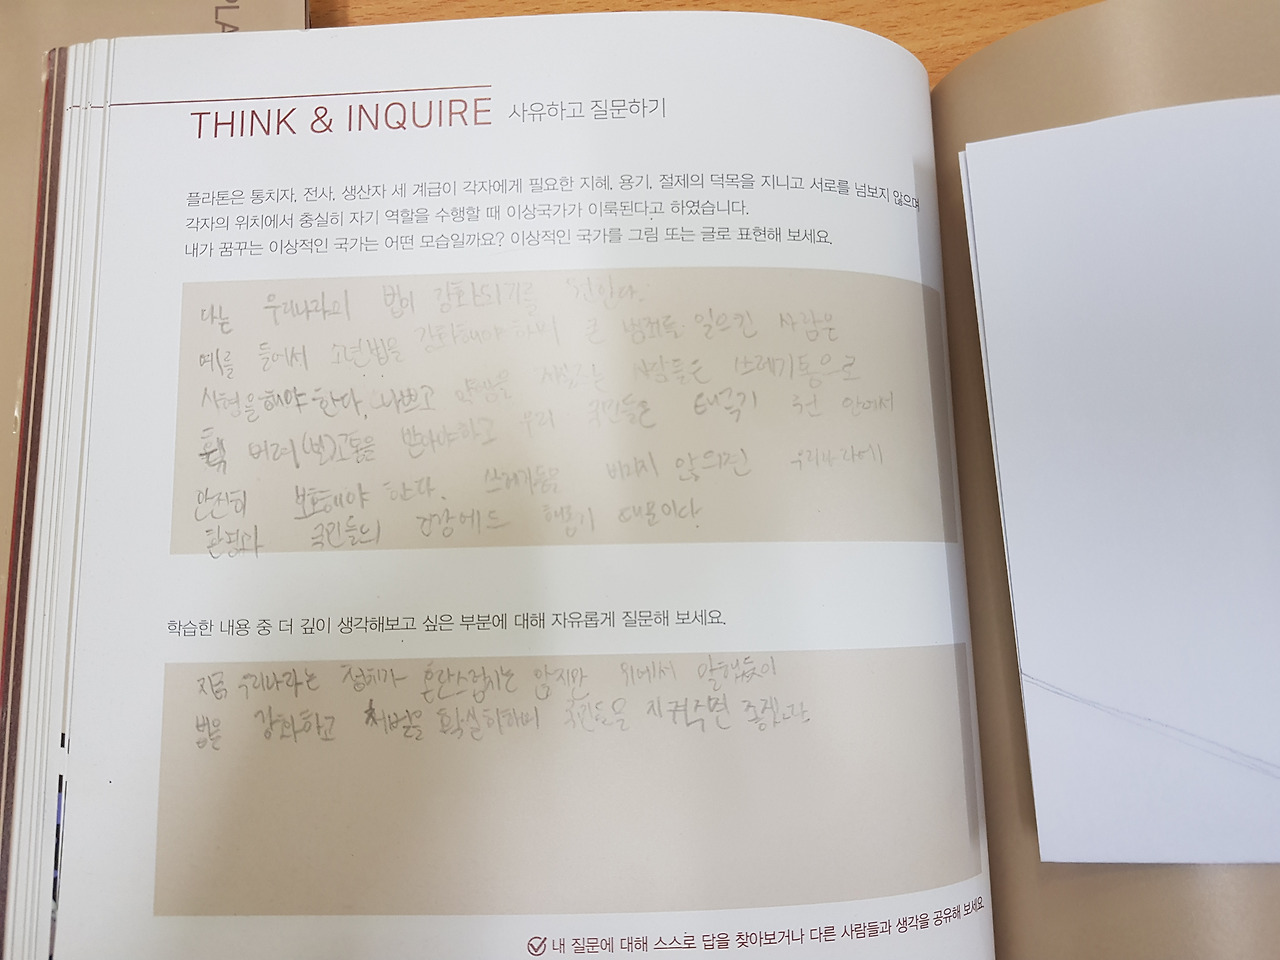 PLA
THINK & INQUIRE 사유하고 질문하기
플라톤은 통치자, 전사, 생산자 세 계급이 각자에게 필요한 지혜, 용기, 절제의 덕목을 지니고 서로를 넘보지 않으며
각자의 위치에서 충실히 자기 역할을 수행할 때 이상국가가 이룩된다고 하였습니다.
내가 꿈꾸는 이상적인 국가는 어떤 모습일까요? 이상적인 국가를 그림 또는 글로 표현해 보세요.
나는 우리나라의 법이 강화되기를 원한다.
예를 들어서 소년법을 강화해야하며 큰 범죄를 일으킨 사람은
사형을 해야 한다. 나쁘고 사람들은 쓰레기통으로
버려 (벌)고통을 받아야하고 우리 국민들은 태극기 안에서
안전히 보호해야 한다. 쓰레기들을 우리나라에
환경과 국민들의 건강에도 해롭기 때문이다.
학습한 내용 중 더 깊이 생각해보고 싶은 부분에 대해 자유롭게 질문해 보세요.
지금 우리나라는 정치가 혼란스럽지는 않지만 위에서 말했듯이
법을 강화하고 처벌을 확실히하며 국민들을 지켜주면 좋겠다.
내 질문에 대해 스스로 답을 찾아보거나 다른 사람들과 생각을 공유해 보세요